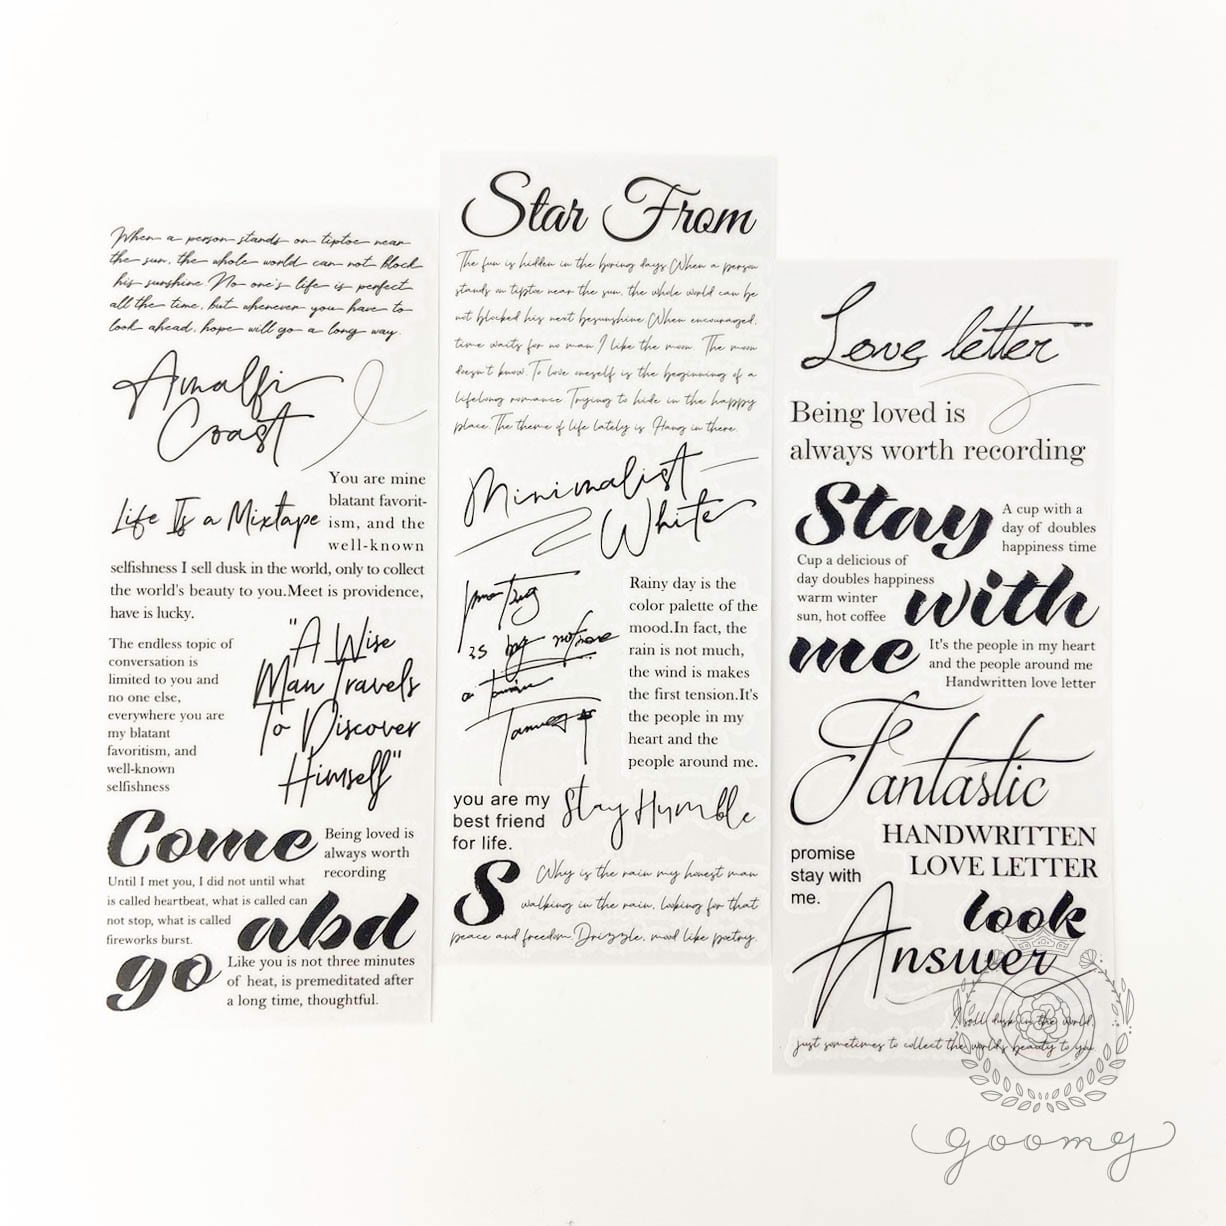 When a person stands on tiptoe near
the sun, the whole world can not block
his sunshine No one's life is perfect
all the time, but whenever you have to
look ahead, hope will go a long way.
Amalfi
Coast
You are mine
blatant favorit-
ism, and the
well-known
Life Is a Mixtape
selfishness I sell dusk in the world, only to collect
the world's beauty to you.Meet is providence,
have is lucky.
The endless topic of
conversation is
limited to you and
no one else,
everywhere you are
my blatant
favoritism, and
well-known
selfishness
"A Wise
Man Travels
To Discover
Himself"
Come
Being loved is
always worth
recording
Until I met you, I did not until what
is called heartbeat, what is called can
not stop, what is called
fireworks burst.
abd
go
Like you is not three minutes
of heat, is premeditated after
a long time, thoughtful.
Star From
The fun is hidden in the boring days When a person
stands on tiptoe near the sun, the whole world can be
not blocked his next besunshine When encouraged,
time waits for no man I like the moon. The moon
doesn't know.To love oneself is the beginning of a
lifelong romance Trying to hide in the happy
place.The theme of life lately is Hang in there.
Minimalist
White
is by
a
Rainy day is the
color palette of the
mood.In fact, the
rain is not much,
the wind is makes
the first tension.It's
the people in my
heart and the
people around me.
you are my
best friend
for life.
Stay Humble
S
Why is the rain my honest man
walking in the rain, looking for that
peace and freedom Drizzle, mood like poetry.
Love letter
Being loved is
always worth recording
Stay
A cup with a
day of doubles
happiness time
Cup a delicious of
day doubles happiness
warm winter
sun, hot coffee
with
me
It's the people in my heart
and the people around me
Handwritten love letter
Fantastic
HANDWRITTEN
LOVE LETTER
promise
stay with
me.
look
Answer
I sell dusk in the world,
just sometimes to collect the world's beauty to you
goomy